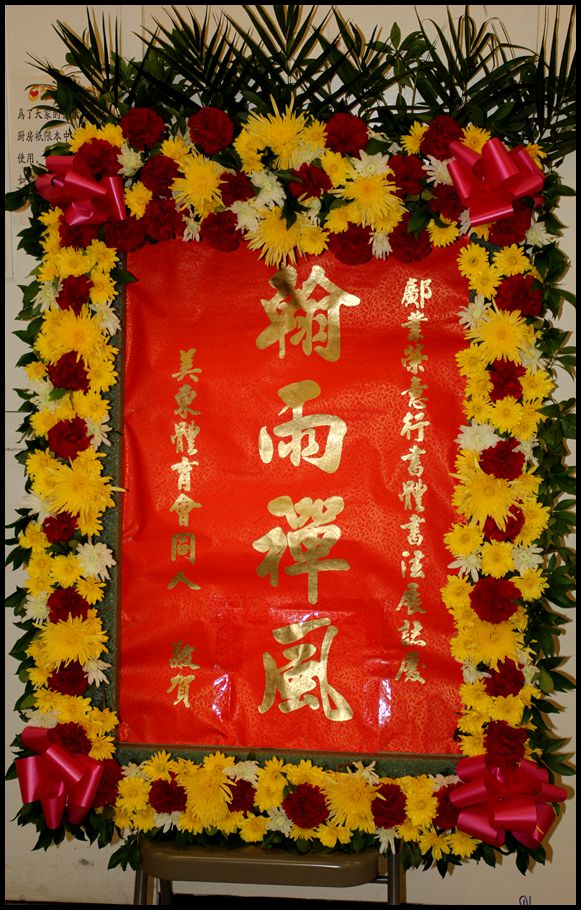 鄺業榮意行書體書法展誌慶
翰雨禪風
美東體育會同人 敬賀
為了大家的
厨房祇限本中
使用